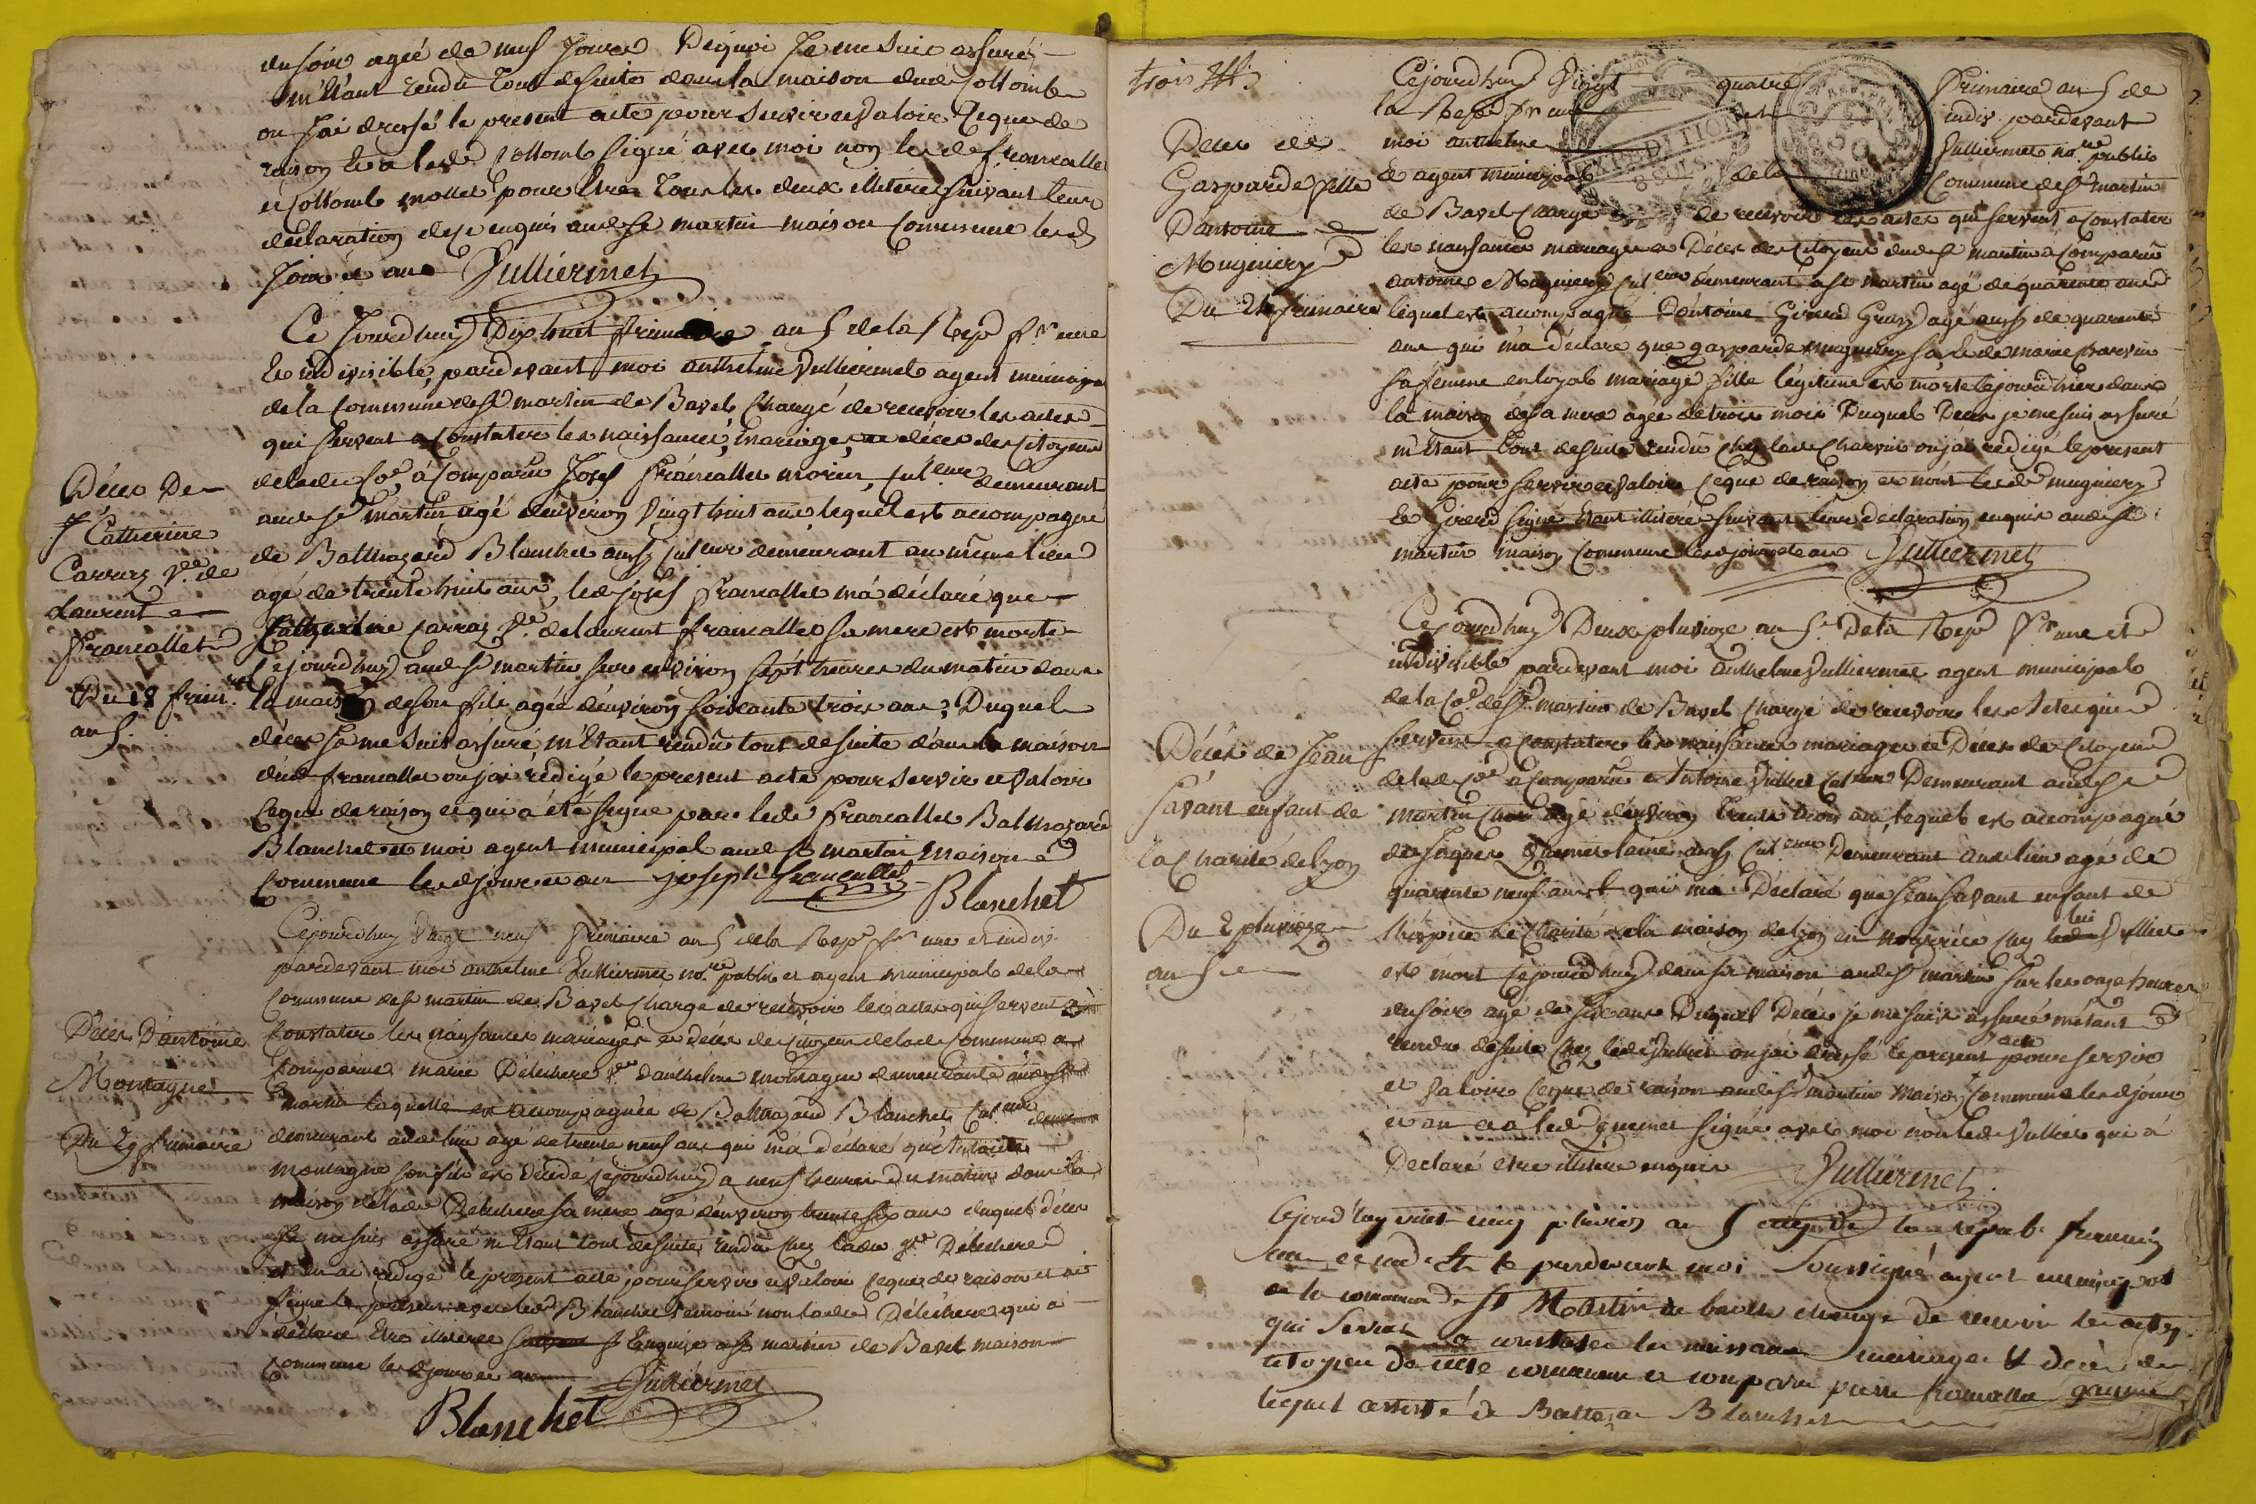 du soir agée de neuf Jours Dequoi Je me suis assuré
m'étant rendu tout desuite dans la maison dud Collomb
ou J'ai dressé le present acte pour servir et valoir Ceque de
raison et a led Collomb signé avec moi non les d françallet
et Collomb mollet pour être tous les deux illiteres suivant leur
declaration de ce enquis aud St martin maison Commune les d
Jour et an Vulliermet
Ce Jourdhuy Dix huit frimaire an 5 de la Rep fr une
Et indivisible, pardevant moi anthelme Vulliermet agent municipal
de la Commune de St martin de Bavel Chargé de recevoir les actes
qui servent a Constater les naissances, mariages et décès des Citoyens
delade Coe, à Comparu Josef françallet morier, Culteur demeurant
aud St martin agé d'environ Vingt huit ans lequel est accompagné
de Balthazard Blanchet aussi Culteur demeurant au même lieu
agé de trente huit ans, led josef françallet m'a déclaré que
Catherine Carraz Ve de laurent françallet sa mere est morte
Cejourdhuy aud St martin sur environ sept heures du matin dans
la maison de son fils agée d'environ soixante trois ans, Duquel
décès Je me suis assuré m'étant rendu tout desuite dans la maison
dud françallet ou j'ai rédigé le present acte pour servir et valoir
Ceque de raison et qui a été signé par led françallet Balthazard
Blanchet et moi agent municipal aud St martin maison
Commune les d jour et an joseph francallet
Blanchet
Décès De
Catherine
Carraz Ve de
laurent
françallet
Du 18 frimre
an 5.
Cejourdhuy Vingt neuf frimaire an 5 de la Repe fr une et indiv
pardevant moi anthelme Vulliermet nore public et agent municipal de la
Commune de St martin de Bavel Chargé de recevoir les actes qui servent à
Constater les naissances mariages et décès des Citoyens delade Commune a
Comparue marie Délechere Ve d'anthelme montagne demeurante aud St
martin laquelle est accompagnée de Balthazard Blanchet Culteur
demeurant aud lieu agé de trente neuf ans qui m'a declaré qu'Antoine
montagne son fils est décédé Cejourdhuy a neuf heures du matin dans la
maison delade Delechere sa mere agé d'environ trente ans duquel décès
Je me suis assuré m'étant tout desuite rendu Chez lade Délechere
et en ai rédigé le present acte pour servir et valoir Ceque de raison et ai
signé le present avec led Blanchet et non lade Délechere qui a
déclaré être illiterée Enquise a St martin de Bavel maison
Commune les d jour et an Vulliermet
Blanchet
Décès D'antoine
Montagne
Du 29 frimaire
trois
Cejourdhuy Vingt quatre frimaire an 5 de
la Repe fr une et indiv pardevant
moi anthelme Vulliermet nore public
et agent municipal de la Commune de St martin
de Bavel Chargé de recevoir les actes qui servent a Constater
les naissances mariages et Décès des Citoyens dud St martin a Comparu
antoine Mugniery Culteur demeurant a St martin agé de quarante ans
lequel est acompagné D'antoine Girerd Gruz agé aussi de quarante
ans qui m'a déclaré que gasparde mugniery et de marie charvin
sa femme en loyal mariage fille légitime est morte Cejourdhier dans
la maison de sa mere agée de trois mois Duquel Décès je me suis assuré
m'étant tout desuite rendu Chez lade Charvin ou j'ai rédigé le present
acte pour servir et valoir Ceque de raison et n'ont les d mugniery
et Girerd signé étant illiterés suivant leur declaration enquis aud St
martin maison Commune les d jour et an Vulliermet
Décès de
Gasparde fille
D'antoine
Mugniery
Du 24 frimaire
EXPEDITION
8 SOLS
Cejourdhuy Deux pluviose an 5e De la Repe fr une et
indivisible pardevant moi anthelme Vulliermet agent municipal
de la Coe de St martin de Bavel Chargé de recevoir les actes qui
servent a Constater les naissances mariages et Décès des Citoyens
delade Coe a Comparu antoine Vulliet Culteur Demeurant aud St
martin agé d'environ trente trois ans, lequel est accompagné
de Jaques Quemet lainé aussi Culteur Demeurant aud lieu agé de
quarante neuf ans qui m'a Déclaré que Jean savant enfant de
l'hospice de Charité de la maison de lyon en nourrice chez lui Vulliet
est mort Cejourdhuy dans sa maison aud St martin sur les onze heures
du soir agé de six ans Duquel Décès je me suis assuré m'étant
rendu desuite Chez led Vulliet ou j'ai dressé le present acte pour servir
et valoir Ceque de raison aud St martin maison Commune les d jour
et an et a led Quemet signé avec moi non led Vulliet qui a
Declaré être illitere enquis Vulliermet
Décès de Jean
Savant enfant de
la Charité de lyon
Du 2 pluviose
an 5e
Cejourd'huy vint cinq pluvios an 5 de la repub. francais
une et pardevant moi Soussigné agent municipal
de la commune de St Martin de bavel chargé de recevoir les actes
qui servent a constater les naissances mariages & décès des
citoyens de cette commune a comparu pierre
lequel assisté de Baltazar Blanchet